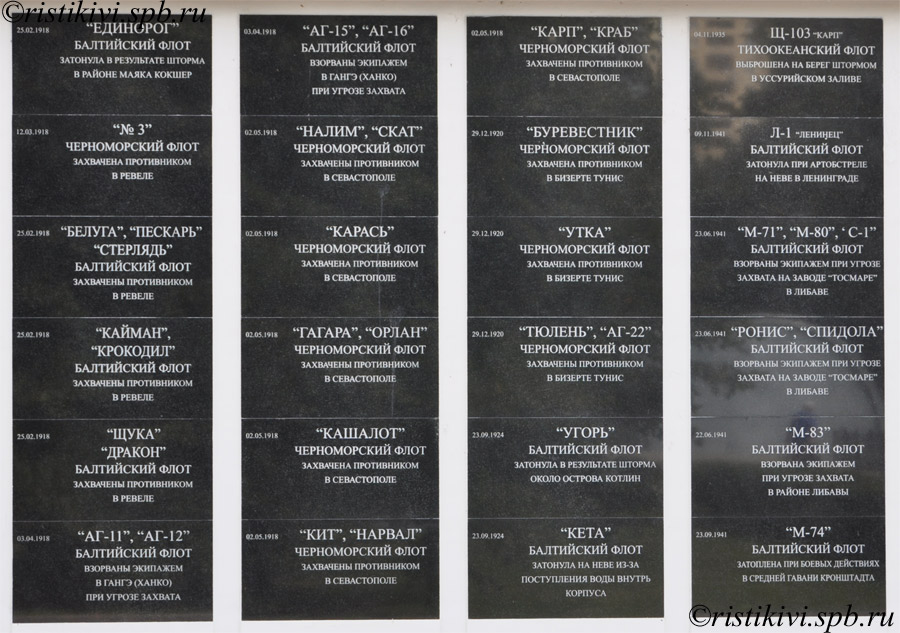 ©ristikivi.spb.ru
25.02.1918
“ЕДИНОРОГ”
БАЛТИЙСКИЙ ФЛОТ
ЗАТОНУЛА В РЕЗУЛЬТАТЕ ШТОРМА
В РАЙОНЕ МАЯКА КОКШЕР
12.03.1918
“№ 3”
ЧЕРНОМОРСКИЙ ФЛОТ
ЗАХВАЧЕНА ПРОТИВНИКОМ
В РЕВЕЛЕ
25.02.1918
“БЕЛУГА”, “ПЕСКАРЬ”
“СТЕРЛЯДЬ”
БАЛТИЙСКИЙ ФЛОТ
ЗАХВАЧЕНЫ ПРОТИВНИКОМ
В РЕВЕЛЕ
25.02.1918
“КАЙМАН”,
“КРОКОДИЛ”
БАЛТИЙСКИЙ ФЛОТ
ЗАХВАЧЕНЫ ПРОТИВНИКОМ
В РЕВЕЛЕ
25.02.1918
“ЩУКА”
“ДРАКОН”
БАЛТИЙСКИЙ ФЛОТ
ЗАХВАЧЕНЫ ПРОТИВНИКОМ
В РЕВЕЛЕ
03.04.1918
“АГ-11”, “АГ-12”
БАЛТИЙСКИЙ ФЛОТ
ВЗОРВАНЫ ЭКИПАЖЕМ
В ГАНГЭ (ХАНКО)
ПРИ УГРОЗЕ ЗАХВАТА
03.04.1918
“АГ-15”, “АГ-16”
БАЛТИЙСКИЙ ФЛОТ
ВЗОРВАНЫ ЭКИПАЖЕМ
В ГАНГЭ (ХАНКО)
ПРИ УГРОЗЕ ЗАХВАТА
02.05.1918
“НАЛИМ”, “СКАТ”
ЧЕРНОМОРСКИЙ ФЛОТ
ЗАХВАЧЕНЫ ПРОТИВНИКОМ
В СЕВАСТОПОЛЕ
02.05.1918
“КАРАСЬ”
ЧЕРНОМОРСКИЙ ФЛОТ
ЗАХВАЧЕНА ПРОТИВНИКОМ
В СЕВАСТОПОЛЕ
02.05.1918
“ГАГАРА”, “ОРЛАН”
ЧЕРНОМОРСКИЙ ФЛОТ
ЗАХВАЧЕНЫ ПРОТИВНИКОМ
В СЕВАСТОПОЛЕ
02.05.1918
“КАШАЛОТ”
ЧЕРНОМОРСКИЙ ФЛОТ
ЗАХВАЧЕНА ПРОТИВНИКОМ
В СЕВАСТОПОЛЕ
02.05.1918
“КИТ”, “НАРВАЛ”
ЧЕРНОМОРСКИЙ ФЛОТ
ЗАХВАЧЕНЫ ПРОТИВНИКОМ
В СЕВАСТОПОЛЕ
02.05.1918
“КАРП”, “КРАБ”
ЧЕРНОМОРСКИЙ ФЛОТ
ЗАХВАЧЕНЫ ПРОТИВНИКОМ
В СЕВАСТОПОЛЕ
29.12.1920
“БУРЕВЕСТНИК”
ЧЕРНОМОРСКИЙ ФЛОТ
ЗАХВАЧЕНА ПРОТИВНИКОМ
В БИЗЕРТЕ ТУНИС
29.12.1920
“УТКА”
ЧЕРНОМОРСКИЙ ФЛОТ
ЗАХВАЧЕНА ПРОТИВНИКОМ
В БИЗЕРТЕ ТУНИС
29.12.1920
“ТЮЛЕНЬ”, “АГ-22”
ЧЕРНОМОРСКИЙ ФЛОТ
ЗАХВАЧЕНЫ ПРОТИВНИКОМ
В БИЗЕРТЕ ТУНИС
23.09.1924
“УГОРЬ”
БАЛТИЙСКИЙ ФЛОТ
ЗАТОНУЛА В РЕЗУЛЬТАТЕ ШТОРМА
ОКОЛО ОСТРОВА КОТЛИН
23.09.1924
“КЕТА”
БАЛТИЙСКИЙ ФЛОТ
ЗАТОНУЛА НА НЕВЕ ИЗ-ЗА
ПОСТУПЛЕНИЯ ВОДЫ ВНУТРЬ
КОРПУСА
04.11.1935
Щ-103 “КАРП”
ТИХООКЕАНСКИЙ ФЛОТ
ВЫБРОШЕНА НА БЕРЕГ ШТОРМОМ
В УССУРИЙСКОМ ЗАЛИВЕ
09.11.1941
Л-1 “ЛЕНИНЕЦ”
БАЛТИЙСКИЙ ФЛОТ
ЗАТОНУЛА ПРИ АРТОБСТРЕЛЕ
НА НЕВЕ В ЛЕНИНГРАДЕ
23.06.1941
“М-71”, “М-80”, ‘ С-1”
БАЛТИЙСКИЙ ФЛОТ
ВЗОРВАНЫ ЭКИПАЖЕМ ПРИ УГРОЗЕ
ЗАХВАТА НА ЗАВОДЕ “ТОСМАРЕ”
В ЛИБАВЕ
23.06.1941
“РОНИС”, “СПИДОЛА”
БАЛТИЙСКИЙ ФЛОТ
ВЗОРВАНЫ ЭКИПАЖЕМ ПРИ УГРОЗЕ
ЗАХВАТА НА ЗАВОДЕ “ТОСМАРЕ”
В ЛИБАВЕ
22.06.1941
“М-83”
БАЛТИЙСКИЙ ФЛОТ
ВЗОРВАНА ЭКИПАЖЕМ
ПРИ УГРОЗЕ ЗАХВАТА
В РАЙОНЕ ЛИБАВЫ
23.09.1941
“М-74”
БАЛТИЙСКИЙ ФЛОТ
ЗАТОПЛЕНА ПРИ БОЕВЫХ ДЕЙСТВИЯХ
В СРЕДНЕЙ ГАВАНИ КРОНШТАДТА
©ristikivi.spb.ru